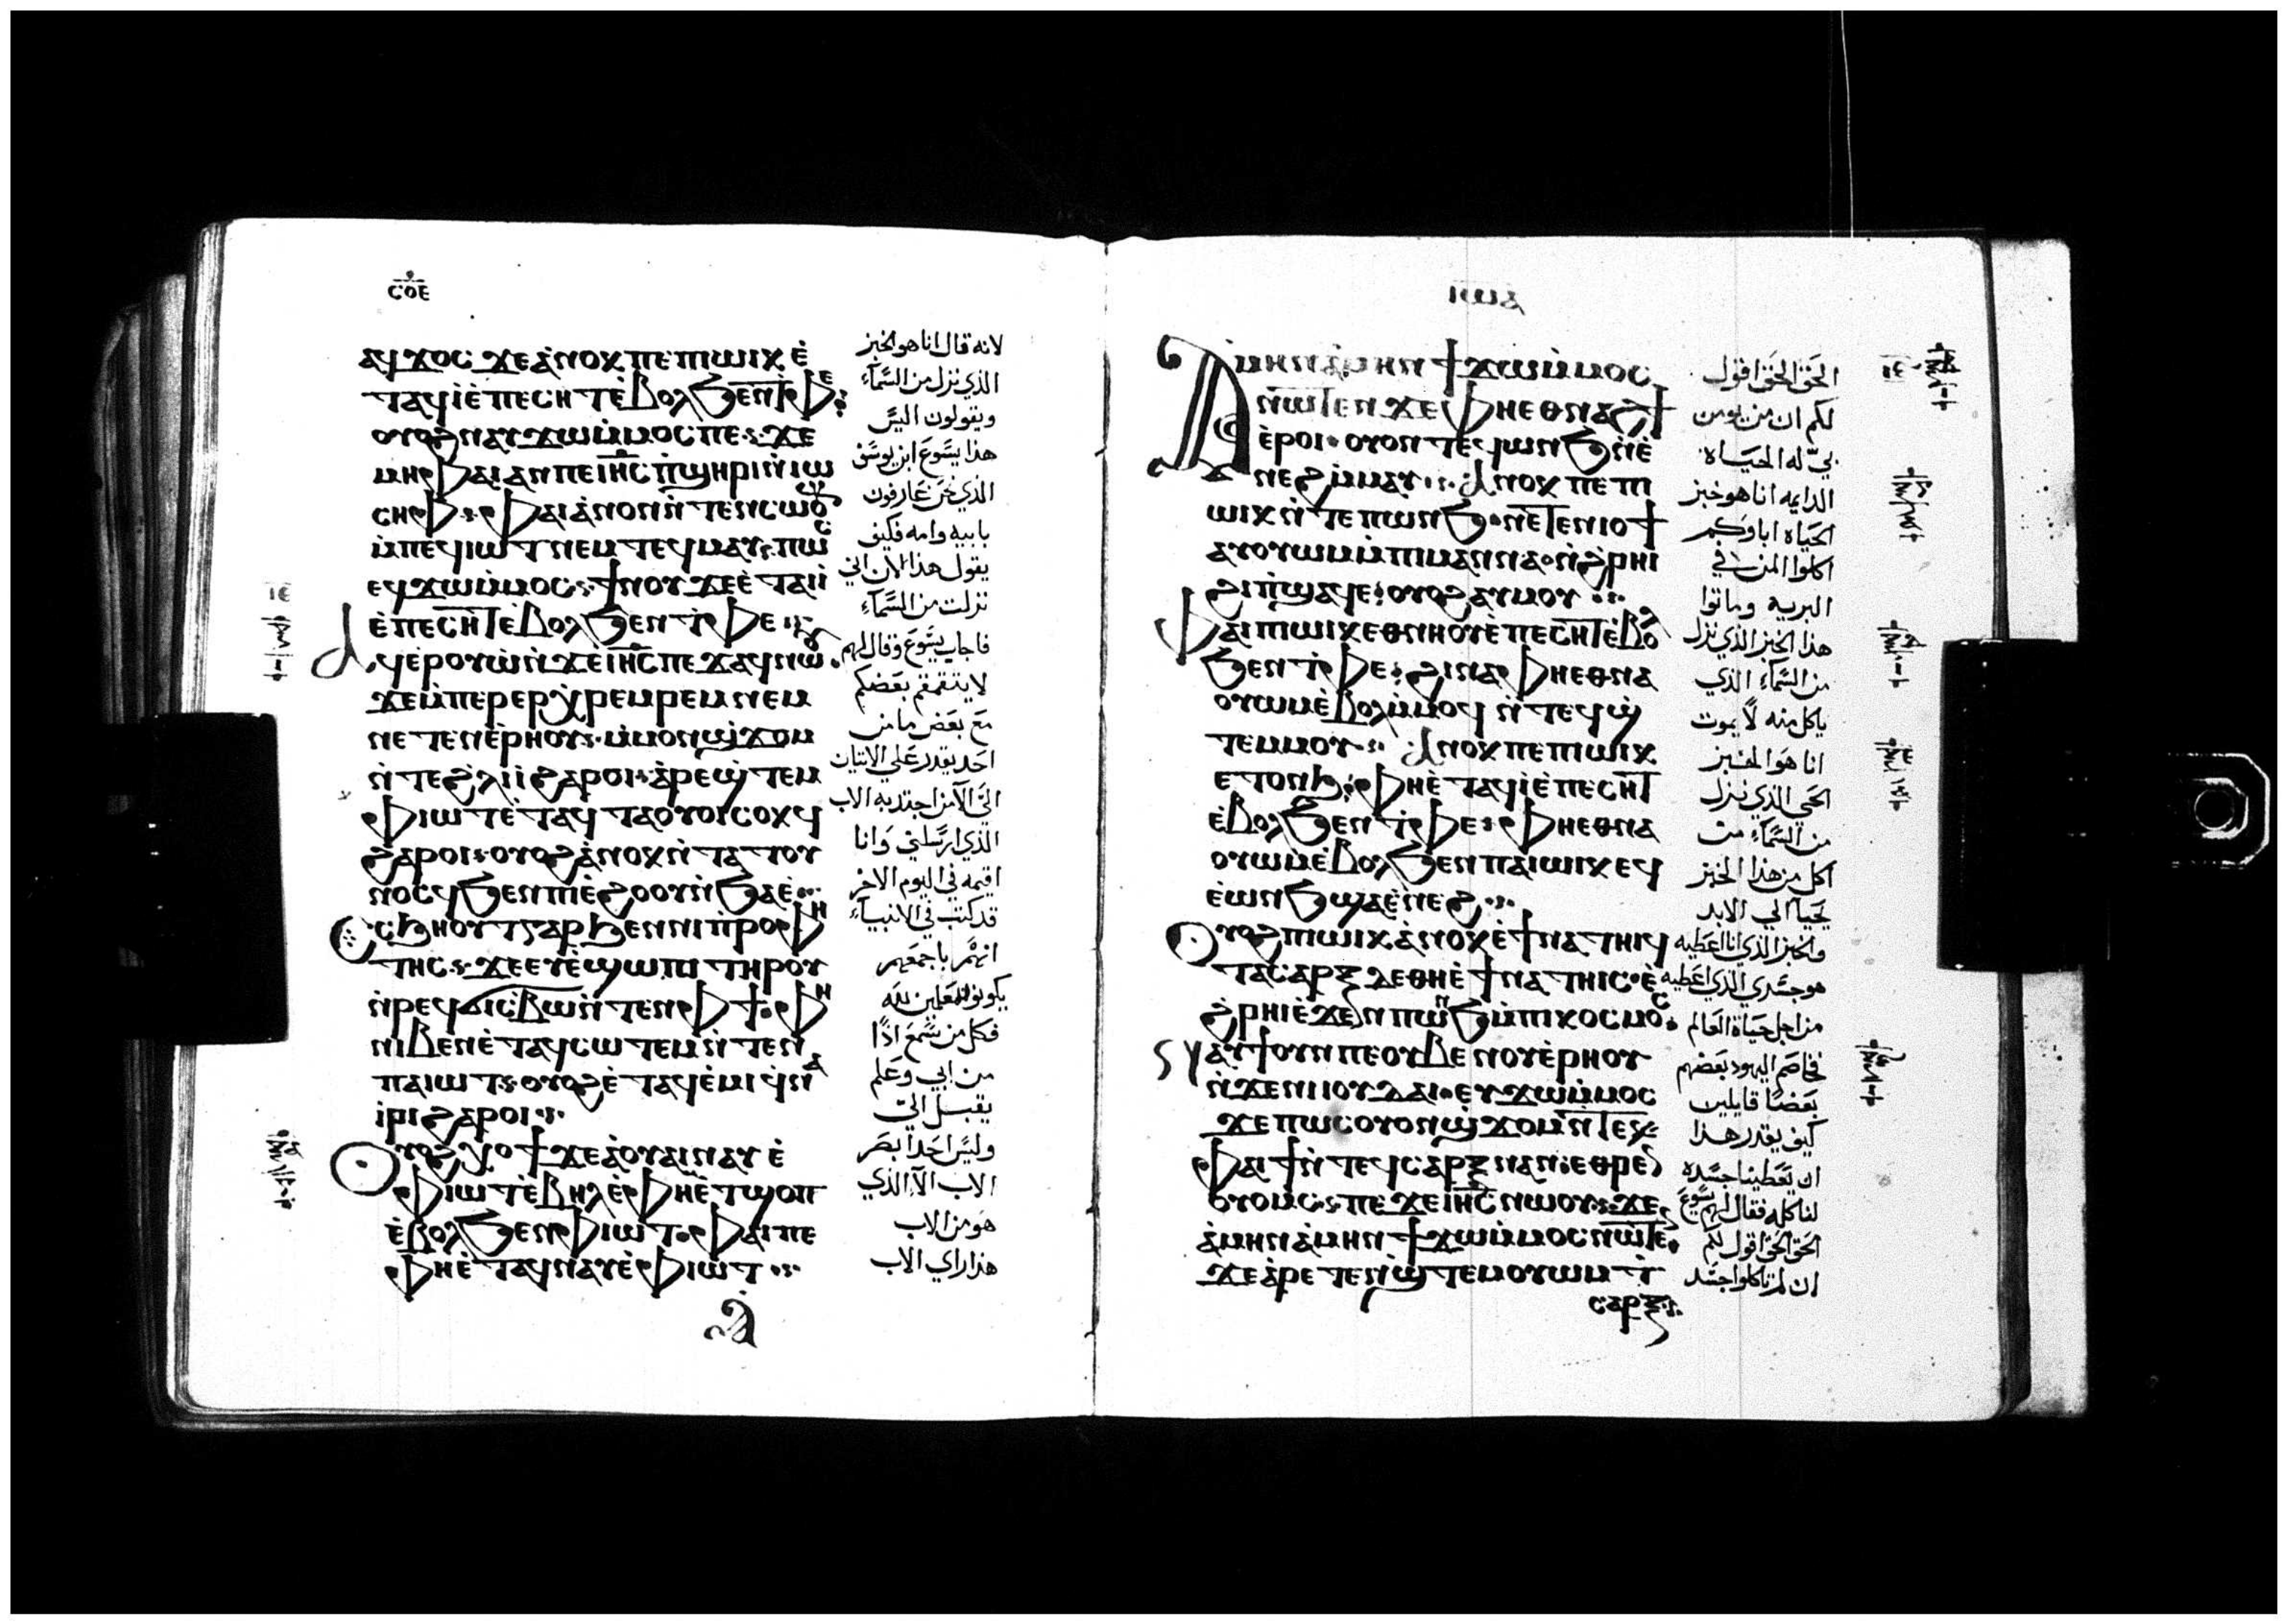 ⲥⲟⲉ
ⲁϥϫⲟⲥ ϫⲉ ⲁⲛⲟⲕ ⲡⲉ ⲡⲓⲱⲓⲕ ⲉ
ⲧⲁϥⲓ ⲉⲡⲉⲥⲏⲧ ⲉⲃⲟⲗ ϧⲉⲛ ⲧⲫⲉ
ⲟⲩⲟϩ ⲛⲁⲩϫⲱ ⲙⲙⲟⲥ ⲡⲉ ϫⲉ
ⲙⲏ ⲫⲁⲓ ⲁⲛ ⲡⲉ ⲓⲏⲥ ⲡϣⲏⲣⲓ ⲛⲓⲱ
ⲥⲏⲫ ⲫⲁⲓ ⲁⲛⲟⲛ ⲛⲧⲉⲛⲥⲱⲟⲩⲛ
ⲙⲡⲉϥⲓⲱⲧ ⲛⲉⲙ ⲧⲉϥⲙⲁⲩ ⲡⲱⲥ
ⲉϥϫⲱ ⲙⲙⲟⲥ ϯⲛⲟⲩ ϫⲉ ⲉⲧⲁⲓⲓ
ⲉⲡⲉⲥⲏⲧ ⲉⲃⲟⲗ ϧⲉⲛ ⲧⲫⲉ
ⲁϥⲉⲣⲟⲩⲱ ⲛϫⲉ ⲓⲏⲥ ⲡⲉϫⲁϥ ⲛⲱⲟⲩ
ϫⲉ ⲙⲡⲉⲣⲉⲣⲭⲣⲉⲙⲣⲉⲙ ⲛⲉⲙ
ⲛⲉⲧⲉⲛⲉⲣⲏⲟⲩ ⲙⲙⲟⲛ ϣϫⲟⲙ
ⲛⲧⲉ ϩⲗⲓ ⲓ ϩⲁⲣⲟⲓ ⲁⲣⲉϣⲧⲉⲙ
ⲫⲓⲱⲧ ⲉⲧⲁϥⲧⲁⲟⲩⲟⲓ ⲥⲟⲕϥ
ϩⲁⲣⲟⲓ ⲟⲩⲟϩ ⲁⲛⲟⲕ ⲛⲧⲁⲧⲟⲩ
ⲛⲟⲥϥ ϧⲉⲛ ⲡⲓⲉϩⲟⲟⲩ ⲛϧⲁⲉ
ⲥϧⲏⲟⲩⲧ ⲅⲁⲣ ϧⲉⲛ ⲛⲓⲡⲣⲟⲫⲏ
ⲧⲏⲥ ϫⲉ ⲉⲩⲉϣⲱⲡⲓ ⲧⲏⲣⲟⲩ
ⲛⲣⲉϥϭⲓⲥⲃⲱ ⲛⲧⲉⲛ ⲫϯ ⲫⲏ
ⲛⲓⲃⲉⲛ ⲉⲧⲁϥⲥⲱⲧⲉⲙ ⲛⲧⲉⲛ
ⲡⲁⲓⲱⲧ ⲟⲩⲟϩ ⲉⲧⲁϥⲉⲙⲓ ϥⲛⲁ
ⲓ ϩⲁⲣⲟⲓ
ⲟⲩⲟϩ ⲭⲟϯ ϫⲉ ⲁ ⲟⲩⲁⲓ ⲛⲁⲩ ⲉ
ⲫⲓⲱⲧ ⲉⲃⲏⲗ ⲉⲫⲏ ⲉⲧϣⲟⲡ
ⲉⲃⲟⲗ ϧⲉⲛ ⲫⲓⲱⲧ ⲫⲁⲓ ⲡⲉ
ⲫⲏ ⲉⲧⲁϥⲛⲁⲩ ⲉⲫⲓⲱⲧ
لانه قال انا هو الخبز
الذي نزل من السمآء
ويقولون اليس
هذا يسوع ابن يوسف
الذي نحن عارفون
بابيه وامه فكيف
يقول هذا الان اني
نزلت من السمآء
فاجاب يسوع وقال لهم
لا يتقمقم بعضكم
مع بعض ما من
احد يقدر علي الاتيان
الي الا من اجتذبه الاب
الذي ارسلني وانا
اقيمه في اليوم الاخر
قد كتب في الانبيآء
انهم باجمعهم
يكونوا متعلمين لله
فكل من سمع اذًا
من ابي وعلم
يقبل الي
وليس احدا بصر
الاب الا الذي
هو من الاب
هذا راي الاب
ⲓⲱⲁ
ⲁⲙⲏⲛ ⲁⲙⲏⲛ ϯϫⲱ ⲙⲙⲟⲥ
ⲛⲱⲧⲉⲛ ϫⲉ ⲫⲏ ⲉⲑⲛⲁϩϯ
ⲉⲣⲟⲓ ⲟⲩⲟⲛⲧⲉϥ ⲱⲛϧ ⲛⲉ
ⲛⲉϩ ⲙⲙⲁⲩ ⲁⲛⲟⲕ ⲡⲉ ⲡⲓ
ⲱⲓⲕ ⲛⲧⲉ ⲡⲱⲛϧ ⲛⲉⲧⲉⲛⲓⲟϯ
ⲁⲩⲟⲩⲱⲙ ⲙⲡⲓⲙⲁⲛⲛⲁ ⲛϩⲣⲏⲓ
ϩⲓ ⲡϣⲁϥⲉ ⲟⲩⲟϩ ⲁⲩⲙⲟⲩ
ⲫⲁⲓ ⲡⲓⲱⲓⲕ ⲉⲑⲛⲏⲟⲩ ⲉⲡⲉⲥⲏⲧ ⲉⲃⲟⲗ
ϧⲉⲛ ⲧⲫⲉ ϩⲓⲛⲁ ⲫⲏ ⲉⲑⲛⲁ
ⲟⲩⲱⲙ ⲉⲃⲟⲗ ⲙⲙⲟϥ ⲛⲧⲉϥϣ
ⲧⲉⲙⲙⲟⲩ ⲁⲛⲟⲕ ⲡⲉ ⲡⲓⲱⲓⲕ
ⲉⲧⲟⲛϧ ⲫⲏ ⲉⲧⲁϥⲓ ⲉⲡⲉⲥⲏⲧ
ⲉⲃⲟⲗ ϧⲉⲛ ⲧⲫⲉ ⲫⲏ ⲉⲑⲛⲁ
ⲟⲩⲱⲙ ⲉⲃⲟⲗ ϧⲉⲛ ⲡⲁⲓⲱⲓⲕ ⲉϥ
ⲉⲱⲛϧ ϣⲁ ⲉⲛⲉϩ
ⲟⲩⲟϩ ⲡⲓⲱⲓⲕ ⲁⲛⲟⲕ ⲉϯⲛⲁⲧⲏⲓϥ
ⲧⲁⲥⲁⲣⲝ ⲇⲉ ⲑⲏ ⲉϯⲛⲁⲧⲏⲓⲥ ⲉ
ϩⲣⲏⲓ ⲉϫⲉⲛ ⲡⲱⲛϧ ⲙⲡⲓⲕⲟⲥⲙⲟⲥ
ⲁⲩϯ ⲟⲩⲛ ⲡⲉ ⲟⲩⲃⲉ ⲛⲟⲩⲉⲣⲏⲟⲩ
ⲛϫⲉ ⲛⲓⲓⲟⲩⲇⲁⲓ ⲉⲩϫⲱ ⲙⲙⲟⲥ
ϫⲉ ⲡⲱⲥ ⲟⲩⲟⲛ ϣϫⲟⲙ ⲛⲧⲉ
ⲫⲁⲓ ϯ ⲛⲧⲉϥⲥⲁⲣⲝ ⲛⲁⲛ ⲉⲑⲣⲉⲛ
ⲟⲩⲟⲙⲥ ⲡⲉϫⲉ ⲓⲏⲥ ⲛⲱⲟⲩ ϫⲉ
ⲁⲙⲏⲛ ⲁⲙⲏⲛ ϯϫⲱ ⲙⲙⲟⲥ ⲛⲱⲧⲉⲛ
ϫⲉ ⲁⲣⲉⲧⲉⲛϣⲧⲉⲙⲟⲩⲱⲙ ⲛⲧ
ⲥⲁⲣⲝ
الحق الحق اقول
لكم ان من يومن
بي له الحياه
الدايمه انا هو خبز
الحياه اباوكم
اكلوا المن في
البريه وماتوا
هذا الخبز الذي نزل
من السمآء الذي
ياكل منه لا يموت
انا هو الخبز
الحي الذي نزل
من السمآء من
اكل من هذا الخبز
يحيا الي الابد
والخبز الذي انا اعطيه
هو جسدي الذي اعطيه
من اجل حياة العالم
فخاصم اليهود بعضهم
بعضًا قايلين
كيف يقدر هذا
ان يعطينا جسده
لناكله فقال لهم يسوع
الحق الحق اقول لكم
ان لم تاكلوا جسد